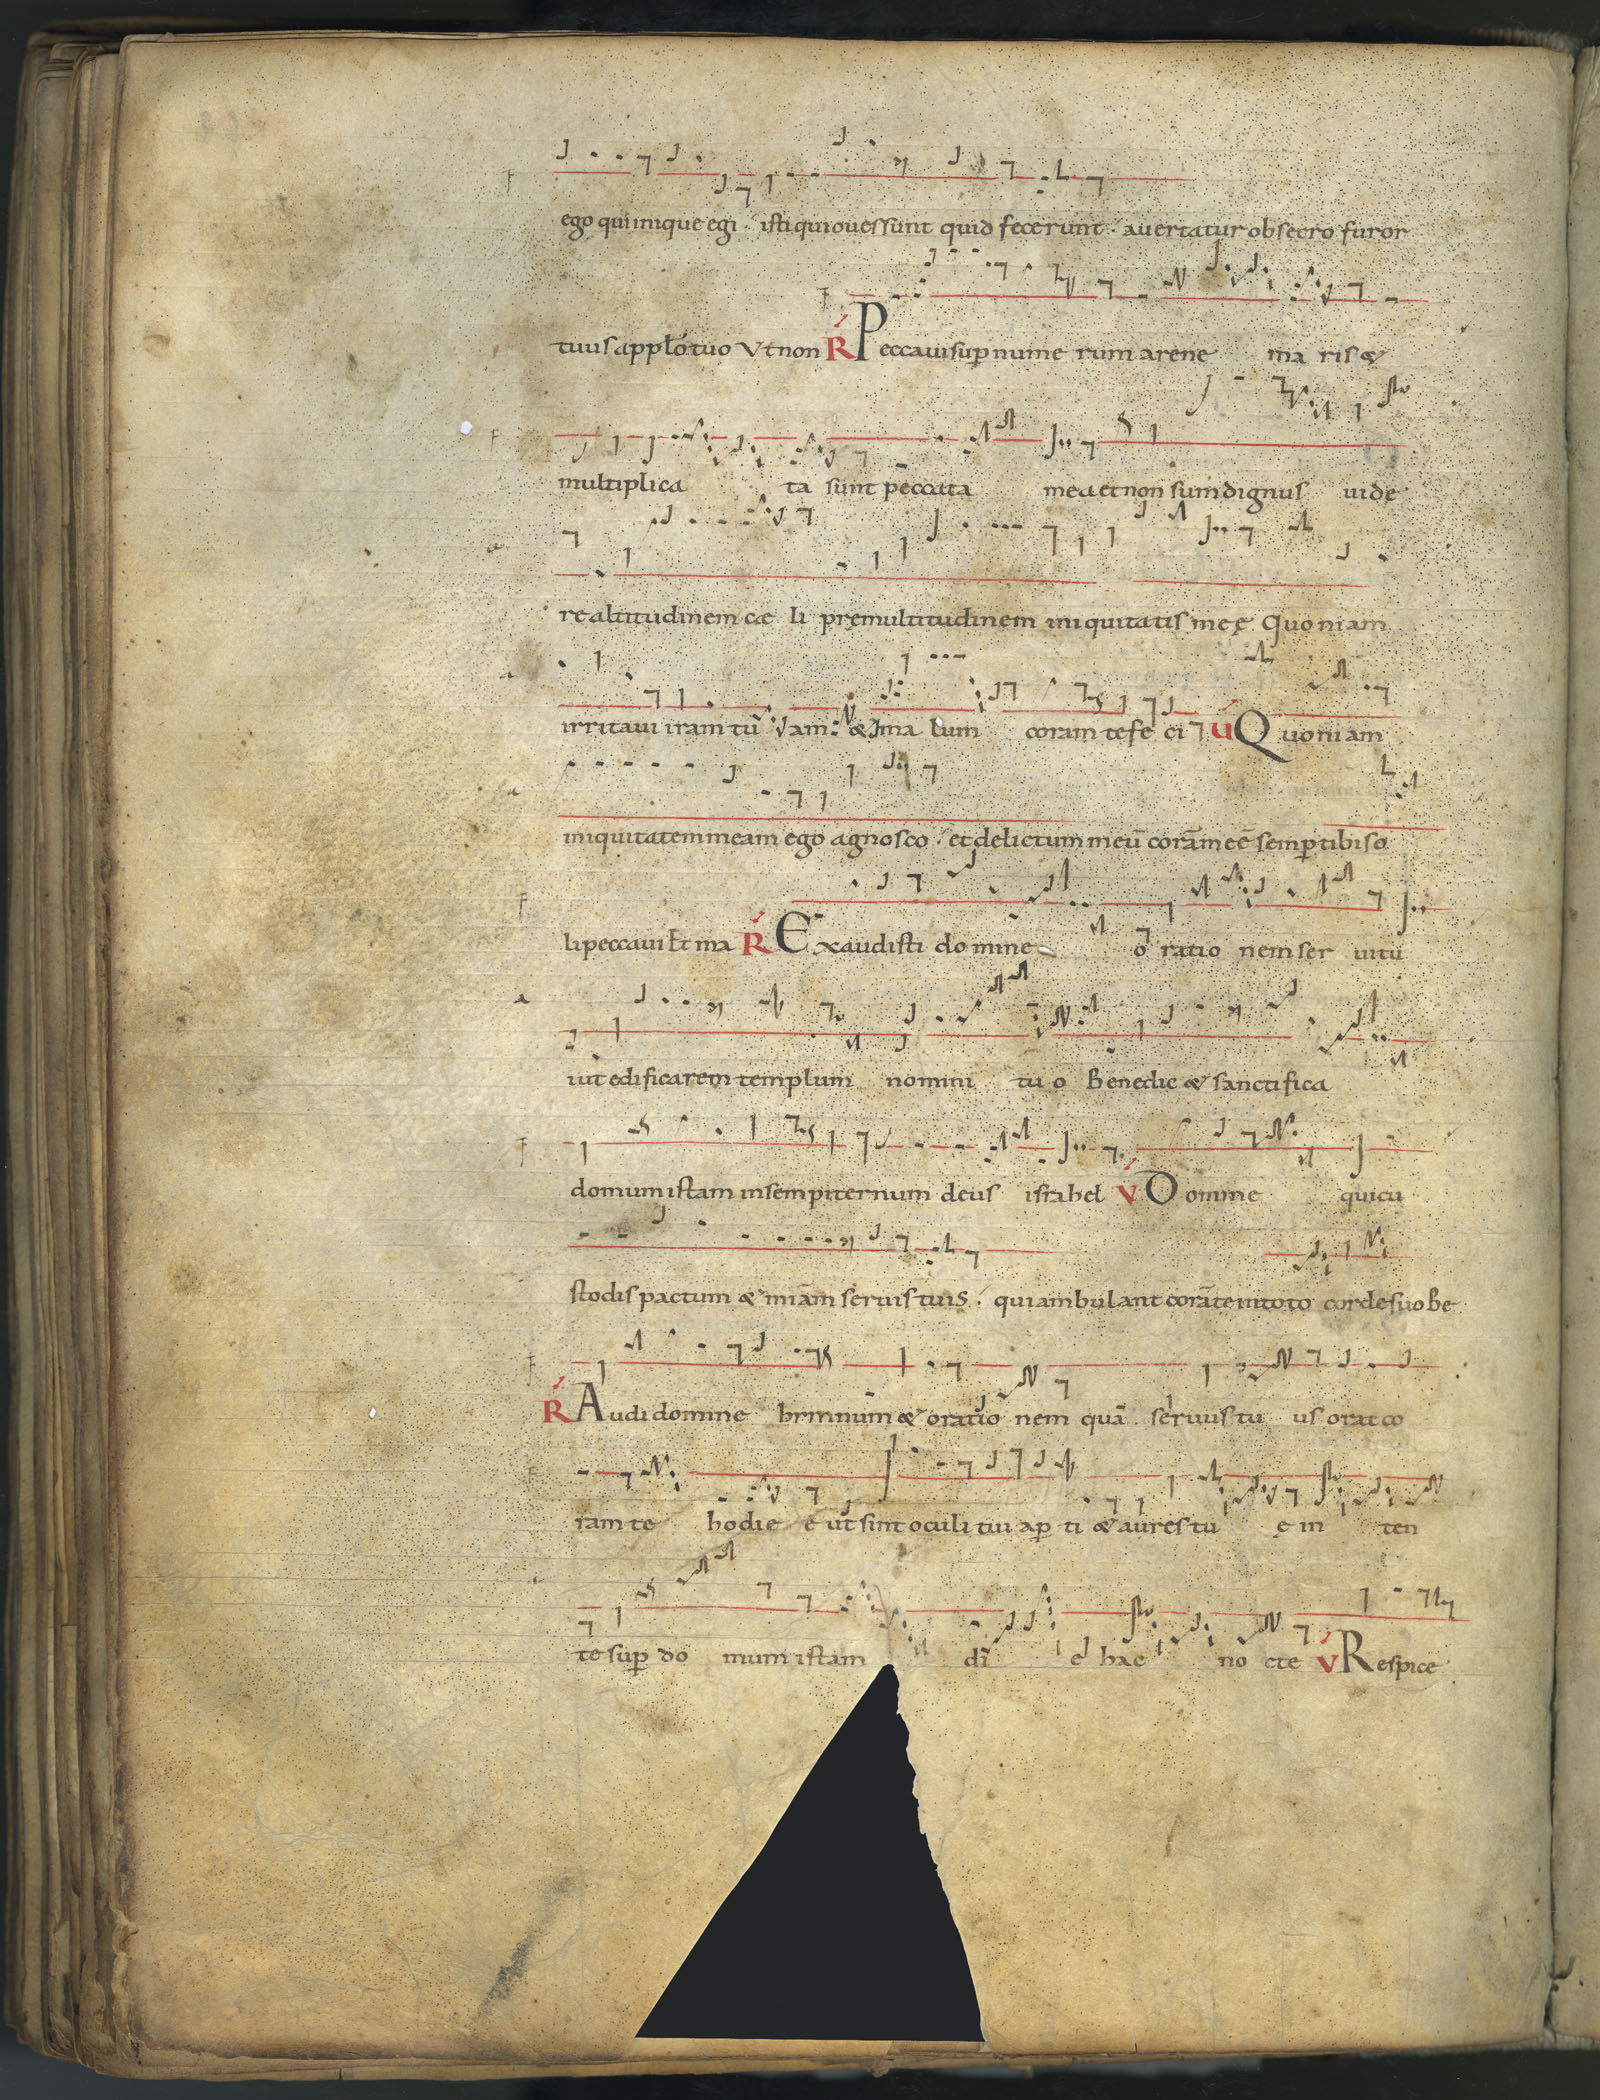 ego qui inique egi · isti qui oues sunt quid fecerunt · auertatur obsecro furor
tuus a pplō tuo Vt non R Peccaui sup numerum arene maris &
multiplicata sunt peccata mea et non sum dignus uide
re altitudinem cæli prę multitudinem iniquitatis meę Quoniam
irritaui iram tuam & malum coram te feci V Quoniam
iniquitatem meam ego agnosco · et delictum meū corā me ē semp tibi so
li peccaui Et ma R Exaudisti domine orationem serui tu
i ut edificarem templum nomini tuo Benedic & sanctifica
domum istam in sempiternum deus israhel V Domine qui cu
stodis pactum & mīam seruis tuis · qui ambulant corā te in toto corde suo Be
R Audi domine hymnum & orationem quā seruus tuus orat co
ram te hodie ut sint oculi tui aperti & aures tuę inten
te sup domum istam di e hac nocte V Respice